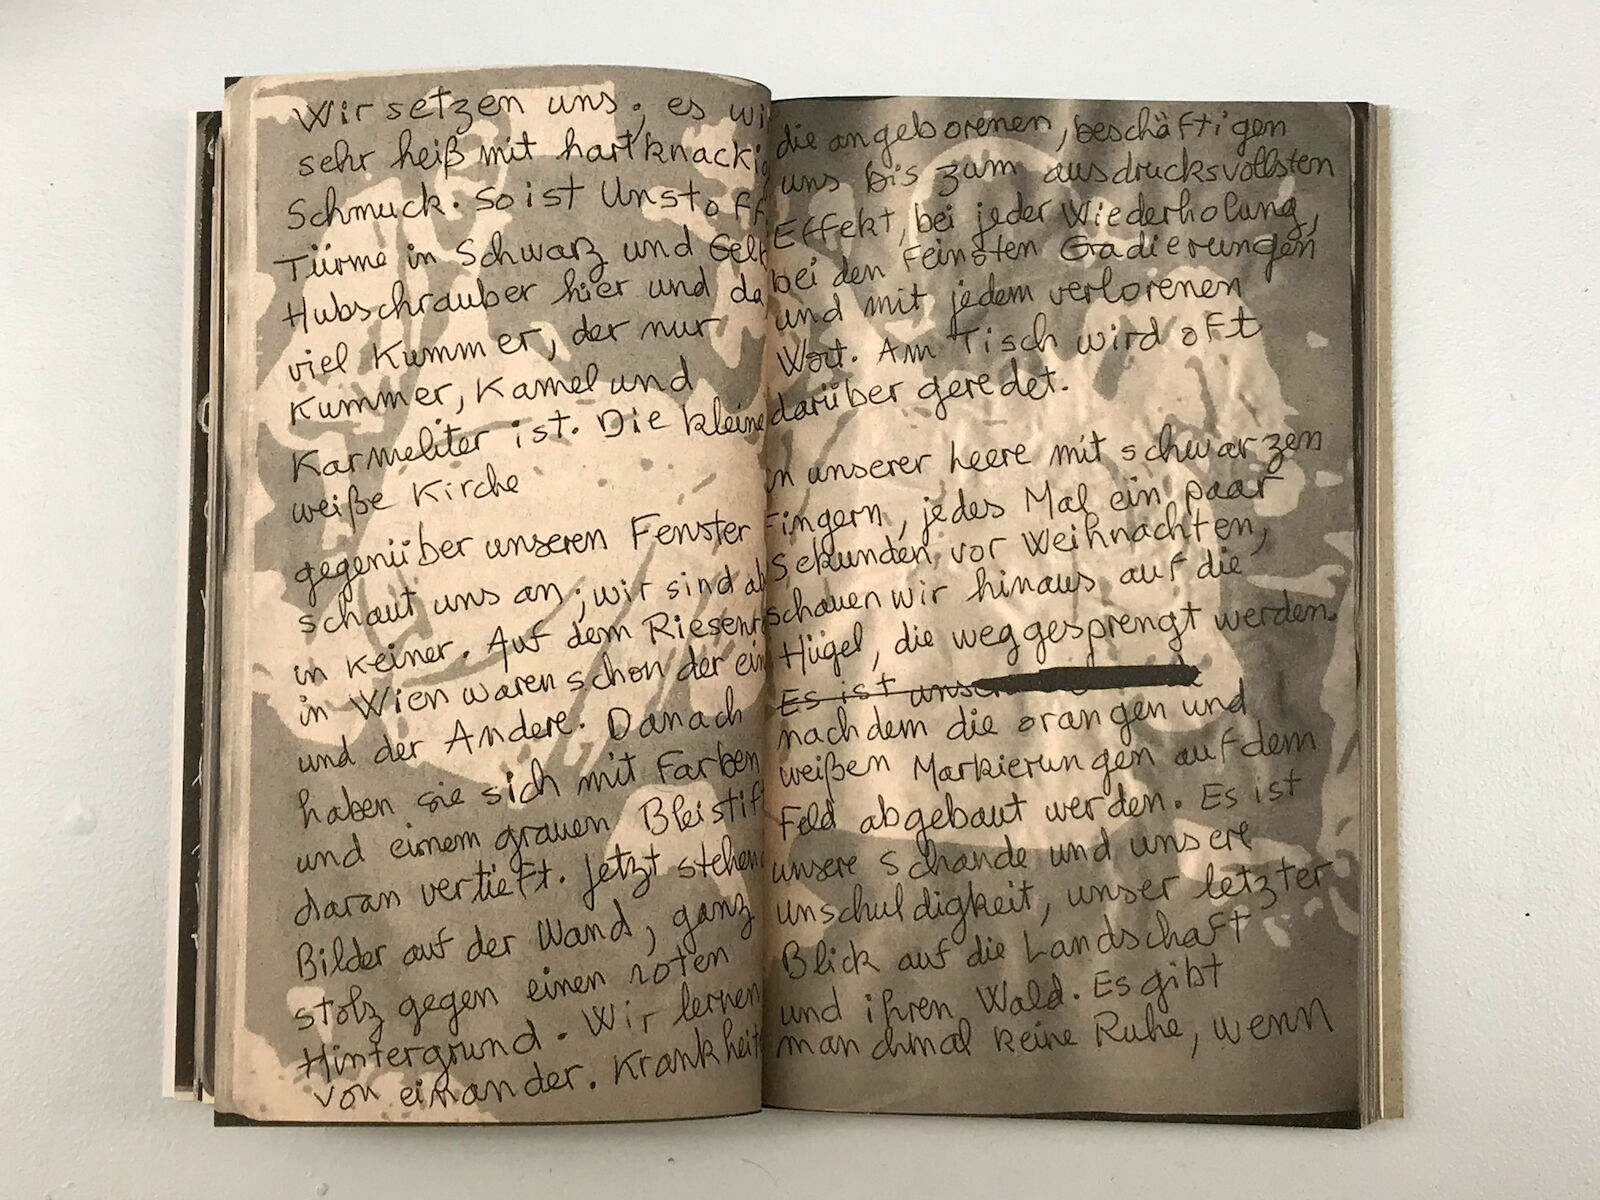 Wir setzen uns; es wi
sehr heiß mit hartknackig
Schmuck. So ist Unstoff
Türme in Schwarz und Gelb
Hubschrauber hier und da
viel Kummer, der nur
Kummer, Kamel und
Karmeliter ist. Die kleine
weiße Kirche
gegenüber unseren Fenster
schaut uns an; wir sind ab
in keiner. Auf dem Riesenr
in Wien waren schon der ein
und der Andere. Danach
haben sie sich mit Farben
und einem grauen Bleistift
daran vertieft. Jetzt stehen
Bilder auf der Wand, ganz
stolz gegen einen roten
Hintergrund. Wir lernen
von einander. Krankheit
die angeborenen, beschäftigen
uns bis zum ausdrucksvollsten
Effekt, bei jeder Wiederholung,
bei den feinsten Gradierungen
und mit jedem verlorenen
Wort. Am Tisch wird oft
darüber geredet.
In unserer leere mit schwarzen
Fingern, jedes Mal ein paar
Sekunden vor Weihnachten,
schauen wir hinaus auf die
Hügel, die weggesprengt werden.
Es ist
nachdem die orangen und
weißen Markierungen auf dem
Feld abgebaut werden. Es ist
unsere Schande und unsere
unschuldigkeit, unser letzter
Blick auf die Landschaft
und ihren Wald. Es gibt
manchmal keine Ruhe, wenn